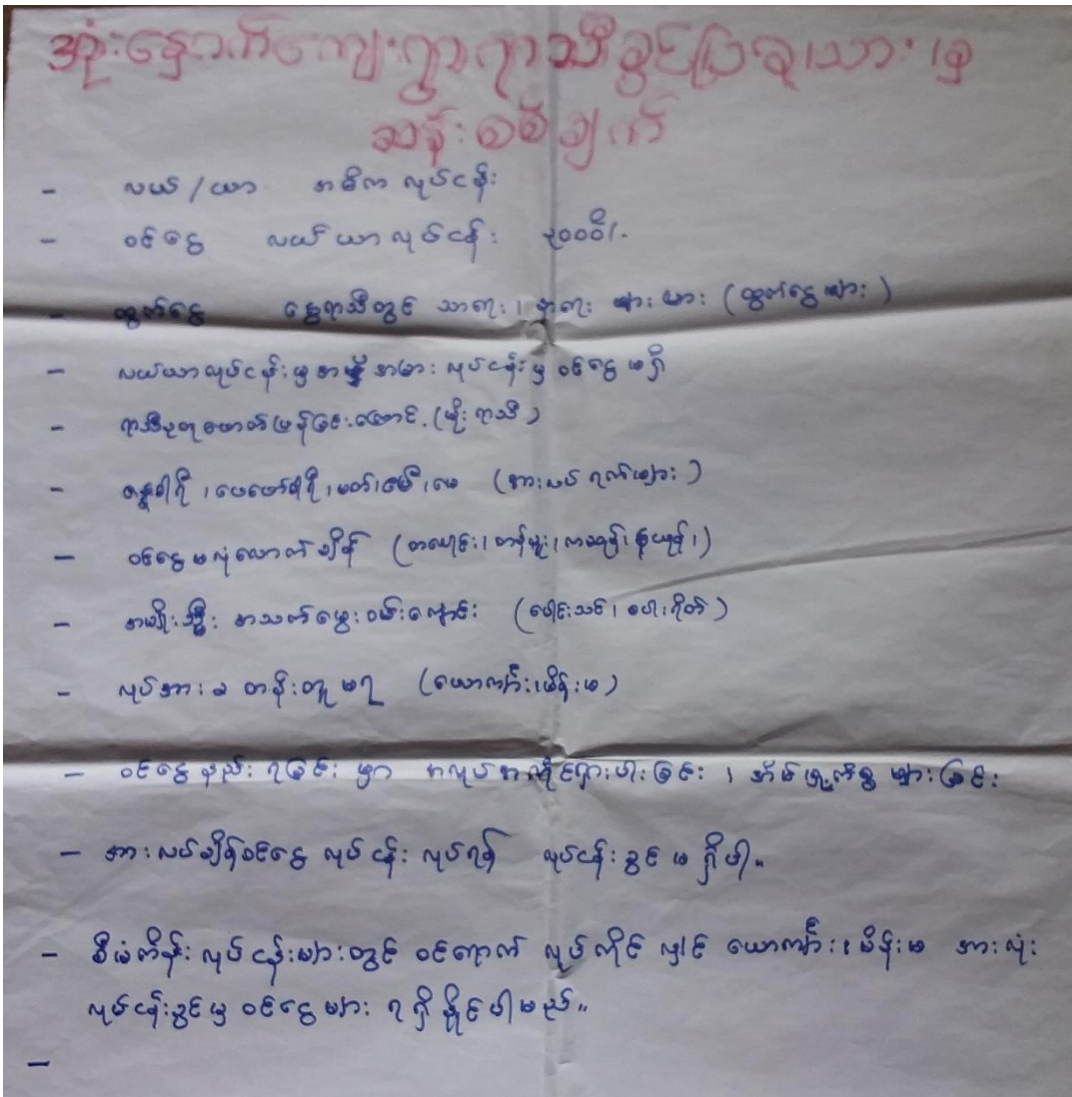 အုံးနှောက်ကျေးရွာရာသီခွင်ပြခုသား၊၏
ဆန်းစစ်ချက်
- လယ်/ယာ အဓိက လုပ်ငန်း
- ဝင်ငွေ လယ်ယာလုပ်ငန်း ၃၀၀၀ိ/-
- ထွက်ငွေ နွေရာသီတွင် သာရေး၊ နာရေး များများ (ထွက်ငွေများ)
- လယ်ယာလုပ်ငန်းမှ အခြား လုပ်ငန်းမှ ဝင်ငွေ မရှိ
- ရာသီဥတုဖောက်ပြန်ခြင်းကြောင့် (မိုးရာသီ)
- ဇန္နဝါရီ၊ ဖေဖော်ဝါရီ၊ မတ်၊ ဧပြီ၊ မေ (အားလပ်ရက်များ)
- ဝင်ငွေမလုံလောက်ချိန် (တပေါင်း၊ တန်ခူး၊ ကဆုန်၊ နယုန်၊)
- အမျိုးသ္မီး အသက်မွေးဝမ်းကျောင်း (ပေါင်းသင်၊ စပါးရိတ်)
- လုပ်အားခ တန်းတူမရ (ယောကျ်ား၊ မိန်းမ)
- ဝင်ငွေနည်းရခြင်းမှာ အလုပ်အကိုင်ရှားပါးခြင်း၊ အိမ်မှုကိစ္စများခြင်း
- အားလပ်ချိန်ဝင်ငွေ လုပ်ငန်း လုပ်ရန် လုပ်ငန်းခွင် မရှိပါ။
- စီမံကိန်း လုပ်ငန်းများတွင် ဝင်ရောက် လုပ်ကိုင် လျှင် ယောကျ်ား၊ မိန်းမ အားလုံး
လုပ်ငန်းခွင်မှ ဝင်ငွေများ ရရှိနိုင်ပါမည်။
-